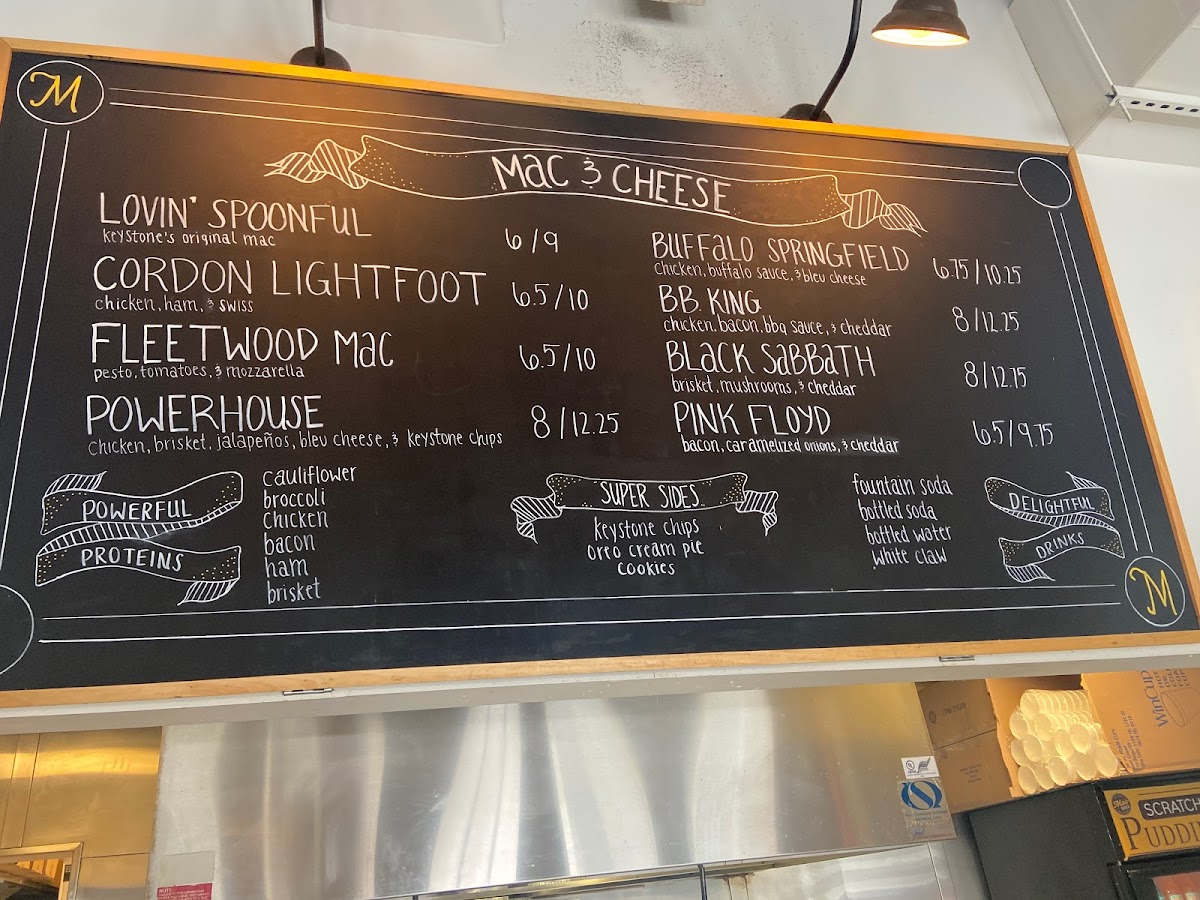 M
MAC & CHEESE
LOVIN' SPOONFUL
keystone's original mac
6/9
CORDON LIGHTFOOT
chicken, ham, & swiss
6.5/10
FLEETWOOD MAC
pesto, tomatoes, & mozzarella
6.5/10
POWERHOUSE
chicken, brisket, jalapeños, bleu cheese, & keystone chips
8/12.25
BUFFALO SPRINGFIELD
chicken, buffalo sauce, & bleu cheese
6.75/10.25
B.B. KING
chicken, bacon, bbq sauce, & cheddar
8/12.25
BLACK SABBATH
brisket, mushrooms, & cheddar
8/12.75
PINK FLOYD
bacon, caramelized onions, & cheddar
6.5/9.75
POWERFUL
PROTEINS
cauliflower
broccoli
chicken
bacon
ham
brisket
SUPER SIDES
keystone chips
oreo cream pie
cookies
fountain soda
bottled soda
bottled water
white claw
DELIGHTFUL
DRINKS
M
WinCup
SCRATCH
PUDD